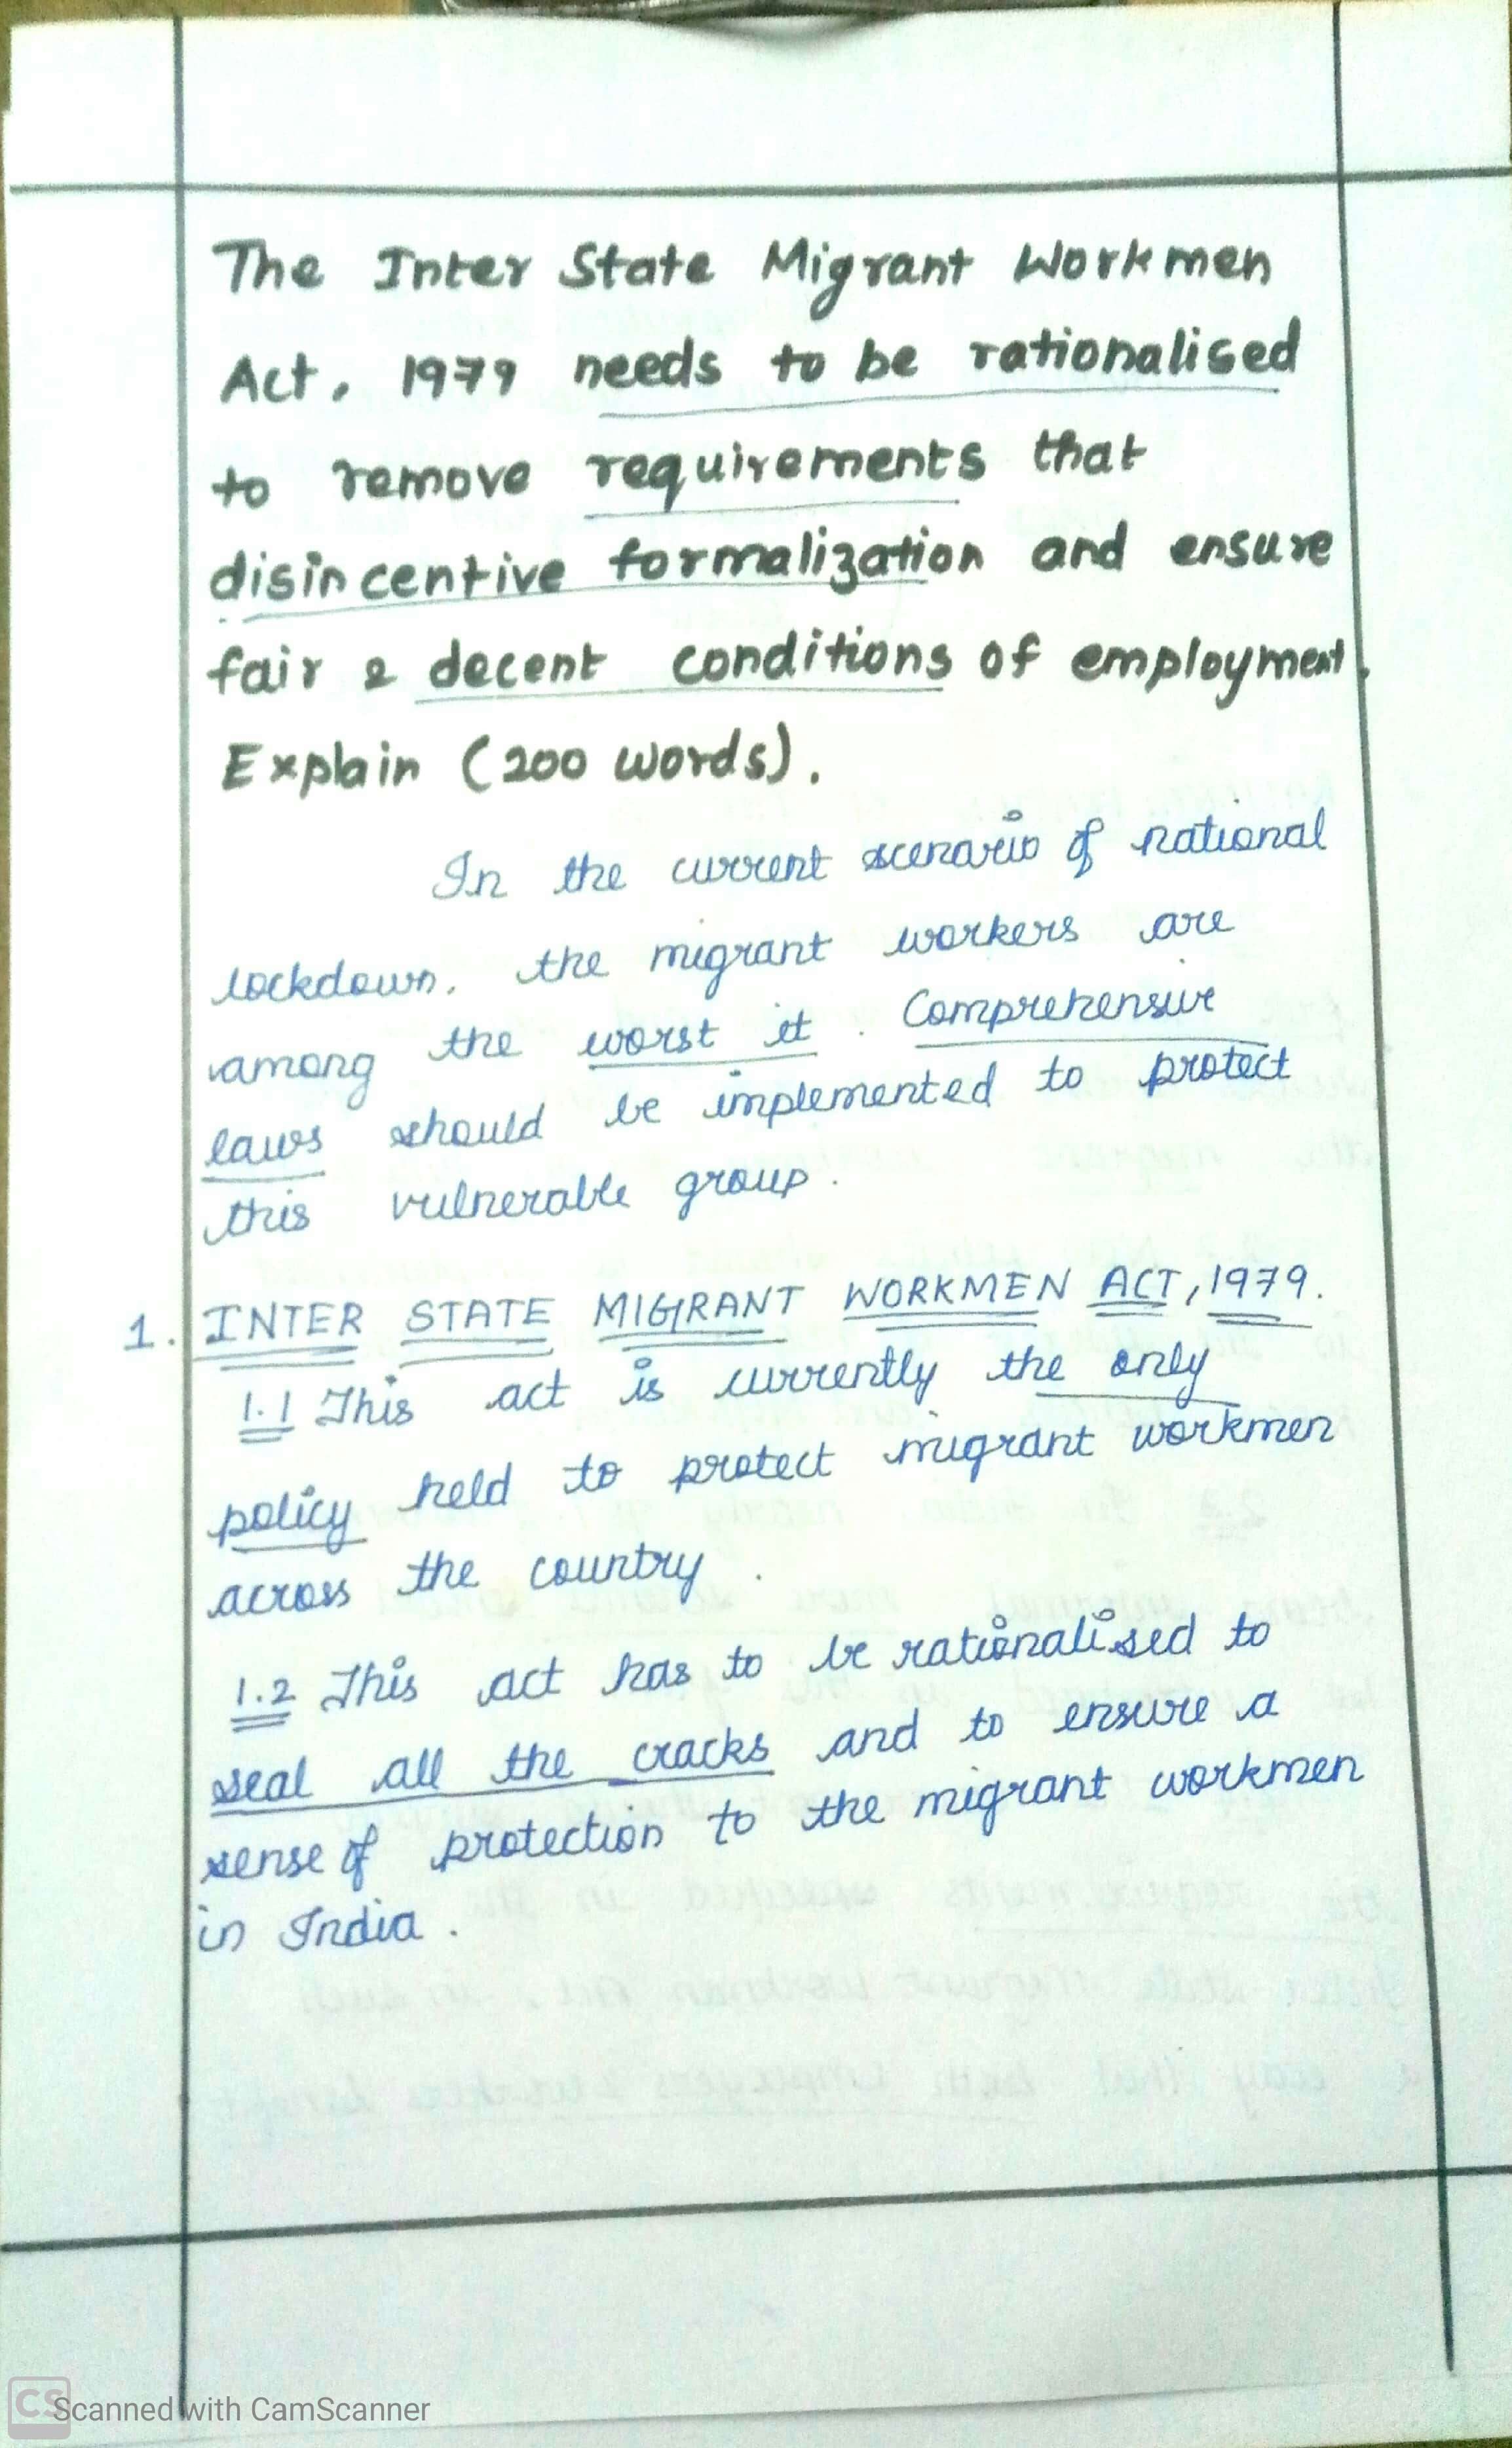 The Inter State Migrant Workmen
Act, 1979 needs to be rationalised
to remove requirements that
disincentive formalization and ensure
fair & decent conditions of employment.
Explain (200 words).
In the current scenario of national
lockdown, the migrant workers are
among the worst it. Comprehensive
laws should be implemented to protect
this vulnerable group.
1. INTER STATE MIGRANT WORKMEN ACT, 1979.
1.1 This act is currently the only
policy held to protect migrant workmen
across the country.
1.2 This act has to be rationalised to
seal all the cracks and to ensure a
sense of protection to the migrant workmen
in India.
CS Scanned with CamScanner